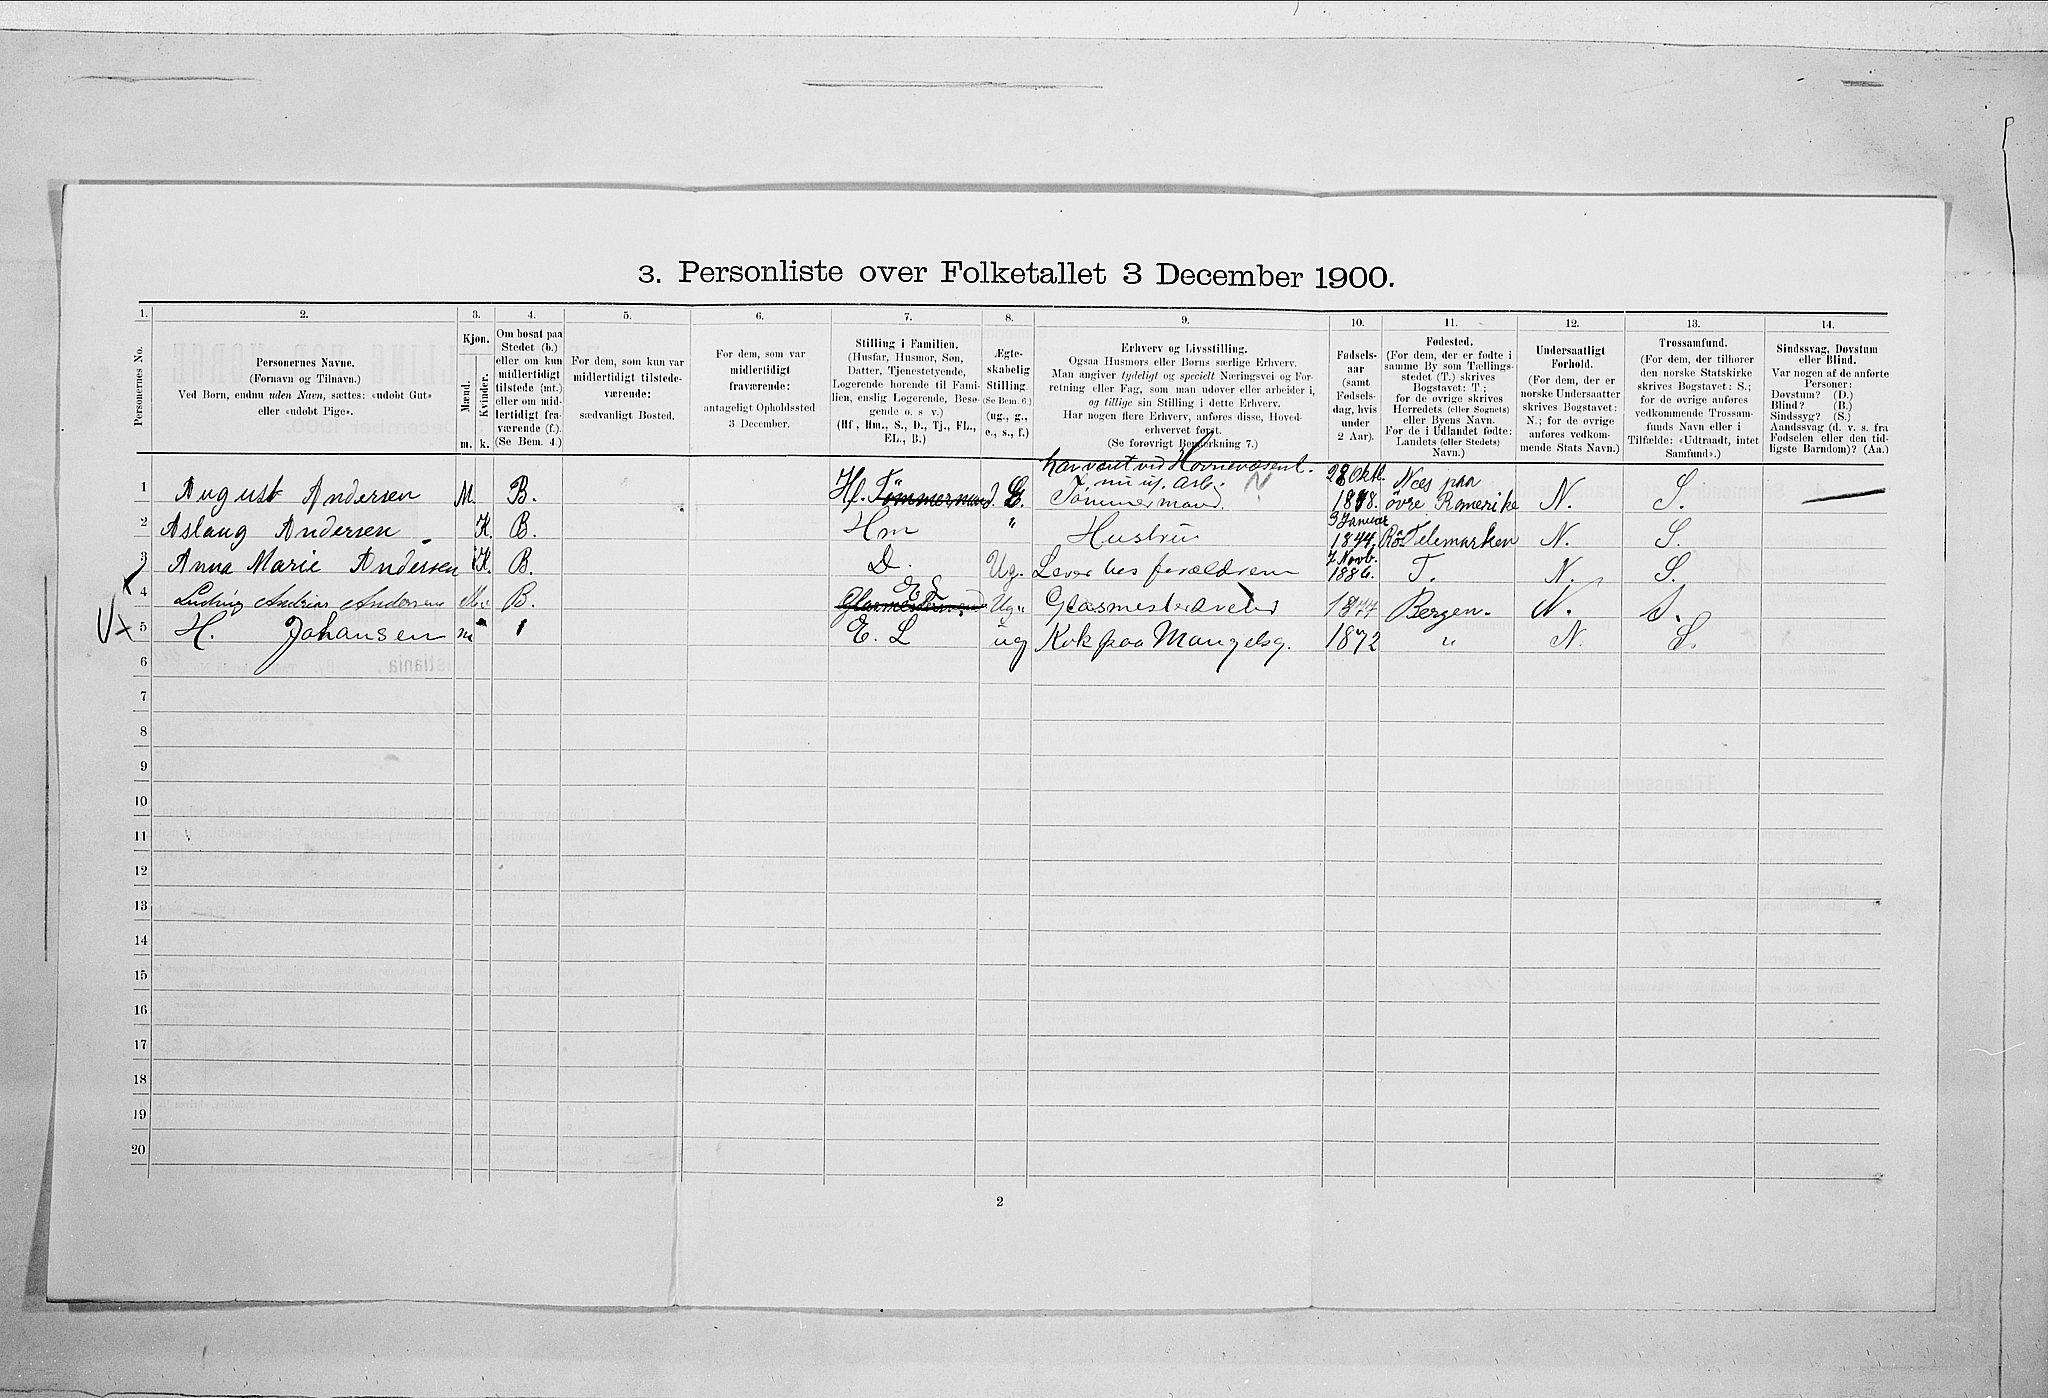 3. Personliste over Folketallet 3 December 1900.
1. 2. 3. 4. 5. 6. 7. 8. 9. 10. 11. 12. 13. 14.
Personernes No.
Personernes Navne.
(Fornavn og Tilnavn.)
Ved Børn, endnu uden Navn, sættes: «udøbt Gut»
eller «udøbt Pige».
Kjøn.
Mænd.
Kvinder.
m. k.
Om bosat paa
Stedet (b.)
eller om kun
midlertidigt
tilstede (mt.)
eller om mid-
lertidigt fra-
værende (f.).
(Se Bem. 4.)
For dem, som kun var
midlertidigt tilstede-
værende:
sædvanligt Bosted.
For dem, som var
midlertidigt
fraværende:
antageligt Opholdssted
3 December.
Stilling i Familien.
(Husfar, Husmor, Søn,
Datter, Tjenestetyende,
Logerende hørende til Fami-
lien, enslig Logerende, Besø-
gende o. s. v.)
(Hf, Hm., S., D., Tj., FL.,
EL., B.)
Ægte-
skabelig
Stilling.
(Se Bem. 6.)
(ug., g.,
e., s., f.)
Erhverv og Livsstilling.
Ogsaa Husmors eller Børns særlige Erhverv.
Man angiver tydeligt og specielt Næringsvei og For-
retning eller Fag, som man udøver eller arbeider i,
og tillige sin Stilling i dette Erhverv.
Har nogen flere Erhverv, anføres disse, Hoved-
erhvervet først.
(Se forøvrigt Bemerkning 7.)
Fødsels-
aar
(samt
Fødsels-
dag, hvis
under
2 Aar).
Fødested.
(For dem, der er fødte i
samme By som Tællings-
stedet (T.) skrives
Bogstavet: T.;
for de øvrige skrives
Herredets (eller Sognets)
eller Byens Navn.
For de i Udlandet fødte:
Landets (eller Stedets)
Navn.)
Undersaatligt
Forhold.
(For dem, der er
norske Undersaatter
skrives Bogstavet:
N.; for de øvrige
anføres vedkom-
mende Stats Navn.)
Trossamfund.
(For dem, der tilhører
den norske Statskirke
skrives Bogstavet: S.;
for de øvrige anføres
vedkommende Trossam-
funds Navn eller i
Tilfælde: «Udtraadt, intet
Samfund».)
Sindssvag, Døvstum
eller Blind.
Var nogen af de anførte
Personer:
Døvstum? (D.)
Blind? (B.)
Sindssyg? (S.)
Aandssvag (d. v. s. fra
Fødselen eller den tid-
ligste Barndom)? (Aa.)
har vært ved Havnevæsent.
nu uf. Arb.
1 August Andersen M. B. Hf. Tømmermand. G. Tømmermand. 28 Okt. 1848. Næs paa øvre Romerike N. S.
2 Aslaug Andersen K. B. Hm " Hustru 3 Januar 1844. Telemarken N. S.
3 Anna Marie Andersen K. B. D. Ug. Lever hos forældrene 7 Novb. 1886. T. N. S.
4 Ludvig Andrias Andersen M. B. E L Ug. 1874 Bergen. N. S.
5 H. Johansen m " E. L ug Kok paa Mangelsg. 1872 " N. S.
6
7
8
9
10
11
12
13
14
15
16
17
18
19
20
2